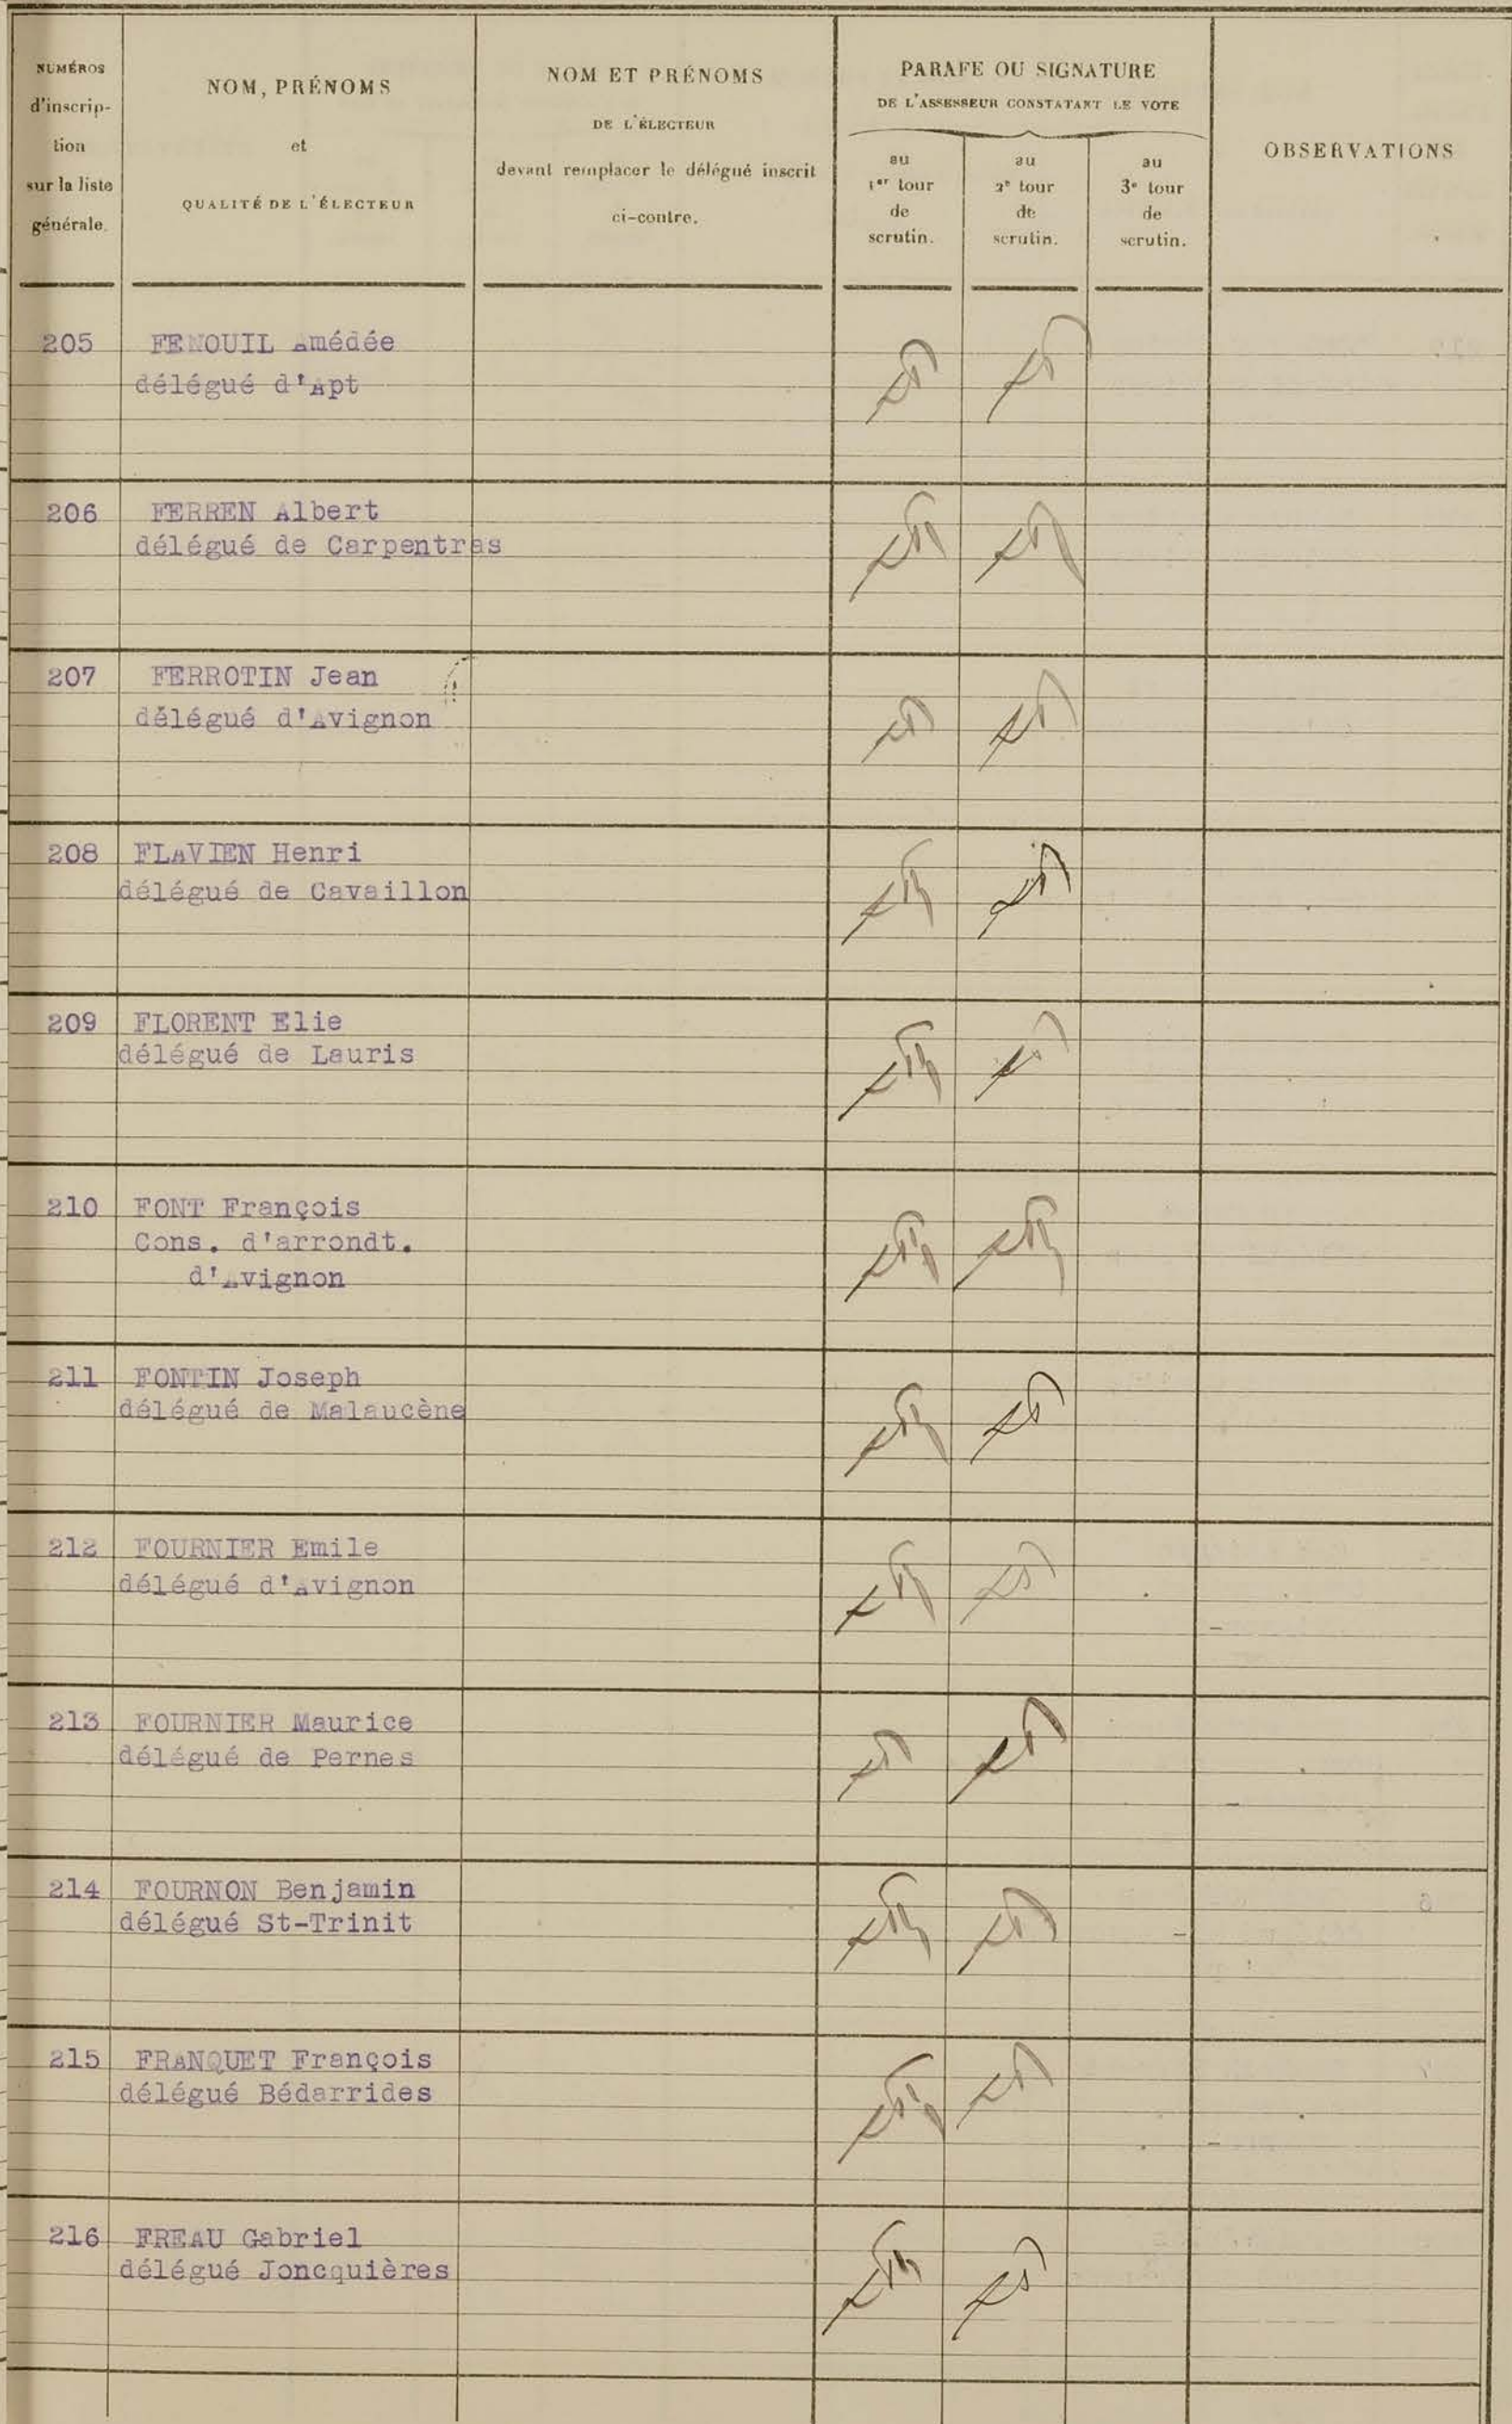 NUMÉROS
d'inscrip-
tion
sur la liste
générale.
NOM, PRÉNOMS
et
QUALITÉ DE L'ÉLECTEUR
NOM ET PRÉNOMS
DE L'ÉLECTEUR
devant remplacer le délégué inscrit
ci-contre.
PARAFE OU SIGNATURE
DE L'ASSESSEUR CONSTATANT LE VOTE
au
1er tour
de
scrutin.
au
2e tour
de
scrutin.
au
3e tour
de
scrutin.
OBSERVATIONS
205 FENOUIL Amédée
délégué d'Apt
206 FERREN Albert
délégué de Carpentras
207 FERROTIN Jean
délégué d'Avignon
208 FLAVIEN Henri
délégué de Cavaillon
209 FLORENT Elie
délégué de Lauris
210 FONT François
Cons. d'arrondt.
d'Avignon
211 FONTIN Joseph
délégué de Malaucène
212 FOURNIER Emile
délégué d'Avignon
213 FOURNIER Maurice
délégué de Pernes
214 FOURNON Benjamin
délégué St-Trinit
215 FRANQUET François
délégué Bédarrides
216 FREAU Gabriel
délégué Joncquières